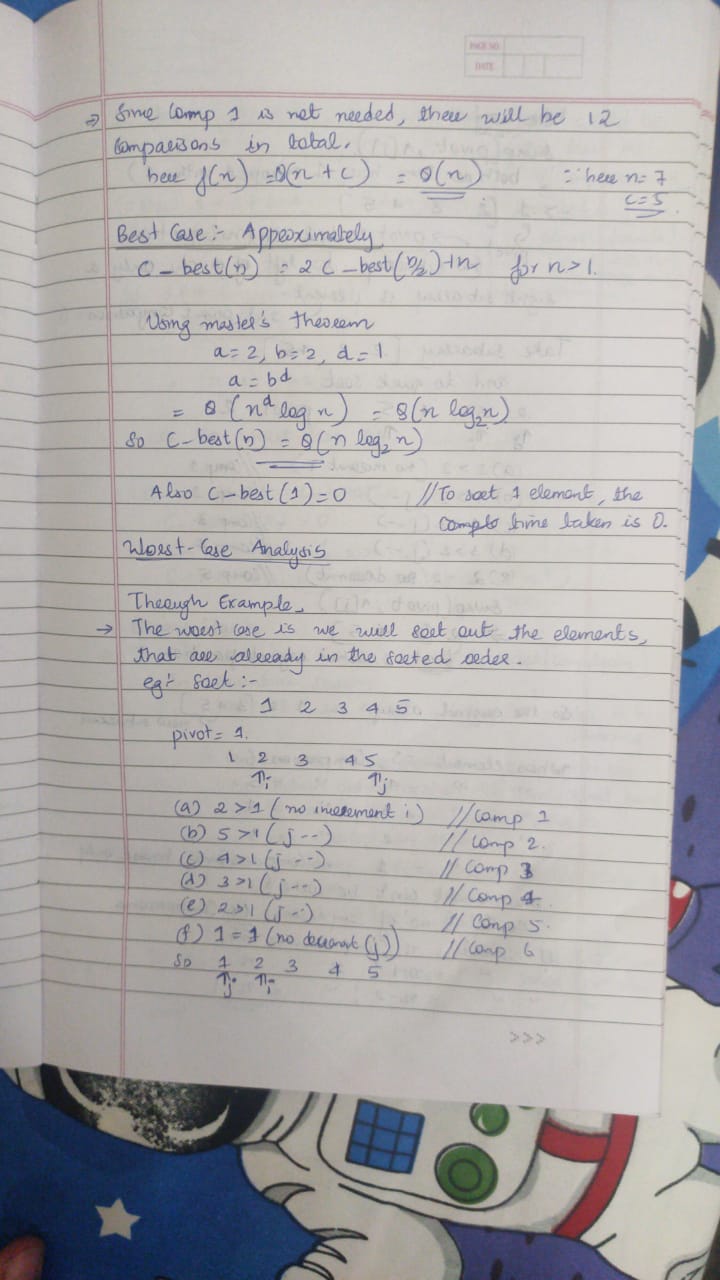 PAGE NO
DATE
⇒ Since Comp 1 is not needed, there will be 12
Comparisons in total.
here f(n) = Θ(n + c) = Θ(n) ∵ here n = 7
c = 5
Best Case :- Approximately
C-best(n) = 2 C-best(n/2) + n for n > 1.
Using master's theorem
a = 2, b = 2, d = 1
a = b^d
= Θ (n^d log n) = Θ(n log₂n)
So C-best(n) = Θ(n log₂n)
Also C-best(1) = 0 // To sort 1 element, the
time taken is 0.
Worst-Case Analysis
Through Example,
→ The worst case is we will sort out the elements,
that are already in the sorted order.
eg:- sort :-
1 2 3 4 5.
pivot = 1.
1 2 3 4 5
↑i ↑j
(a) 2 > 1 (no increment i) // Comp 1
(b) 5 > 1 (j--) // Comp 2.
(c) 4 > 1 (j--) // Comp 3
(d) 3 > 1 (j--) // Comp 4.
(e) 2 > 1 (j--) // Comp 5.
(f) 1 = 1 (no decrement (j)) // Comp 6
So 1 2 3 4 5
↑j ↑i
>>>